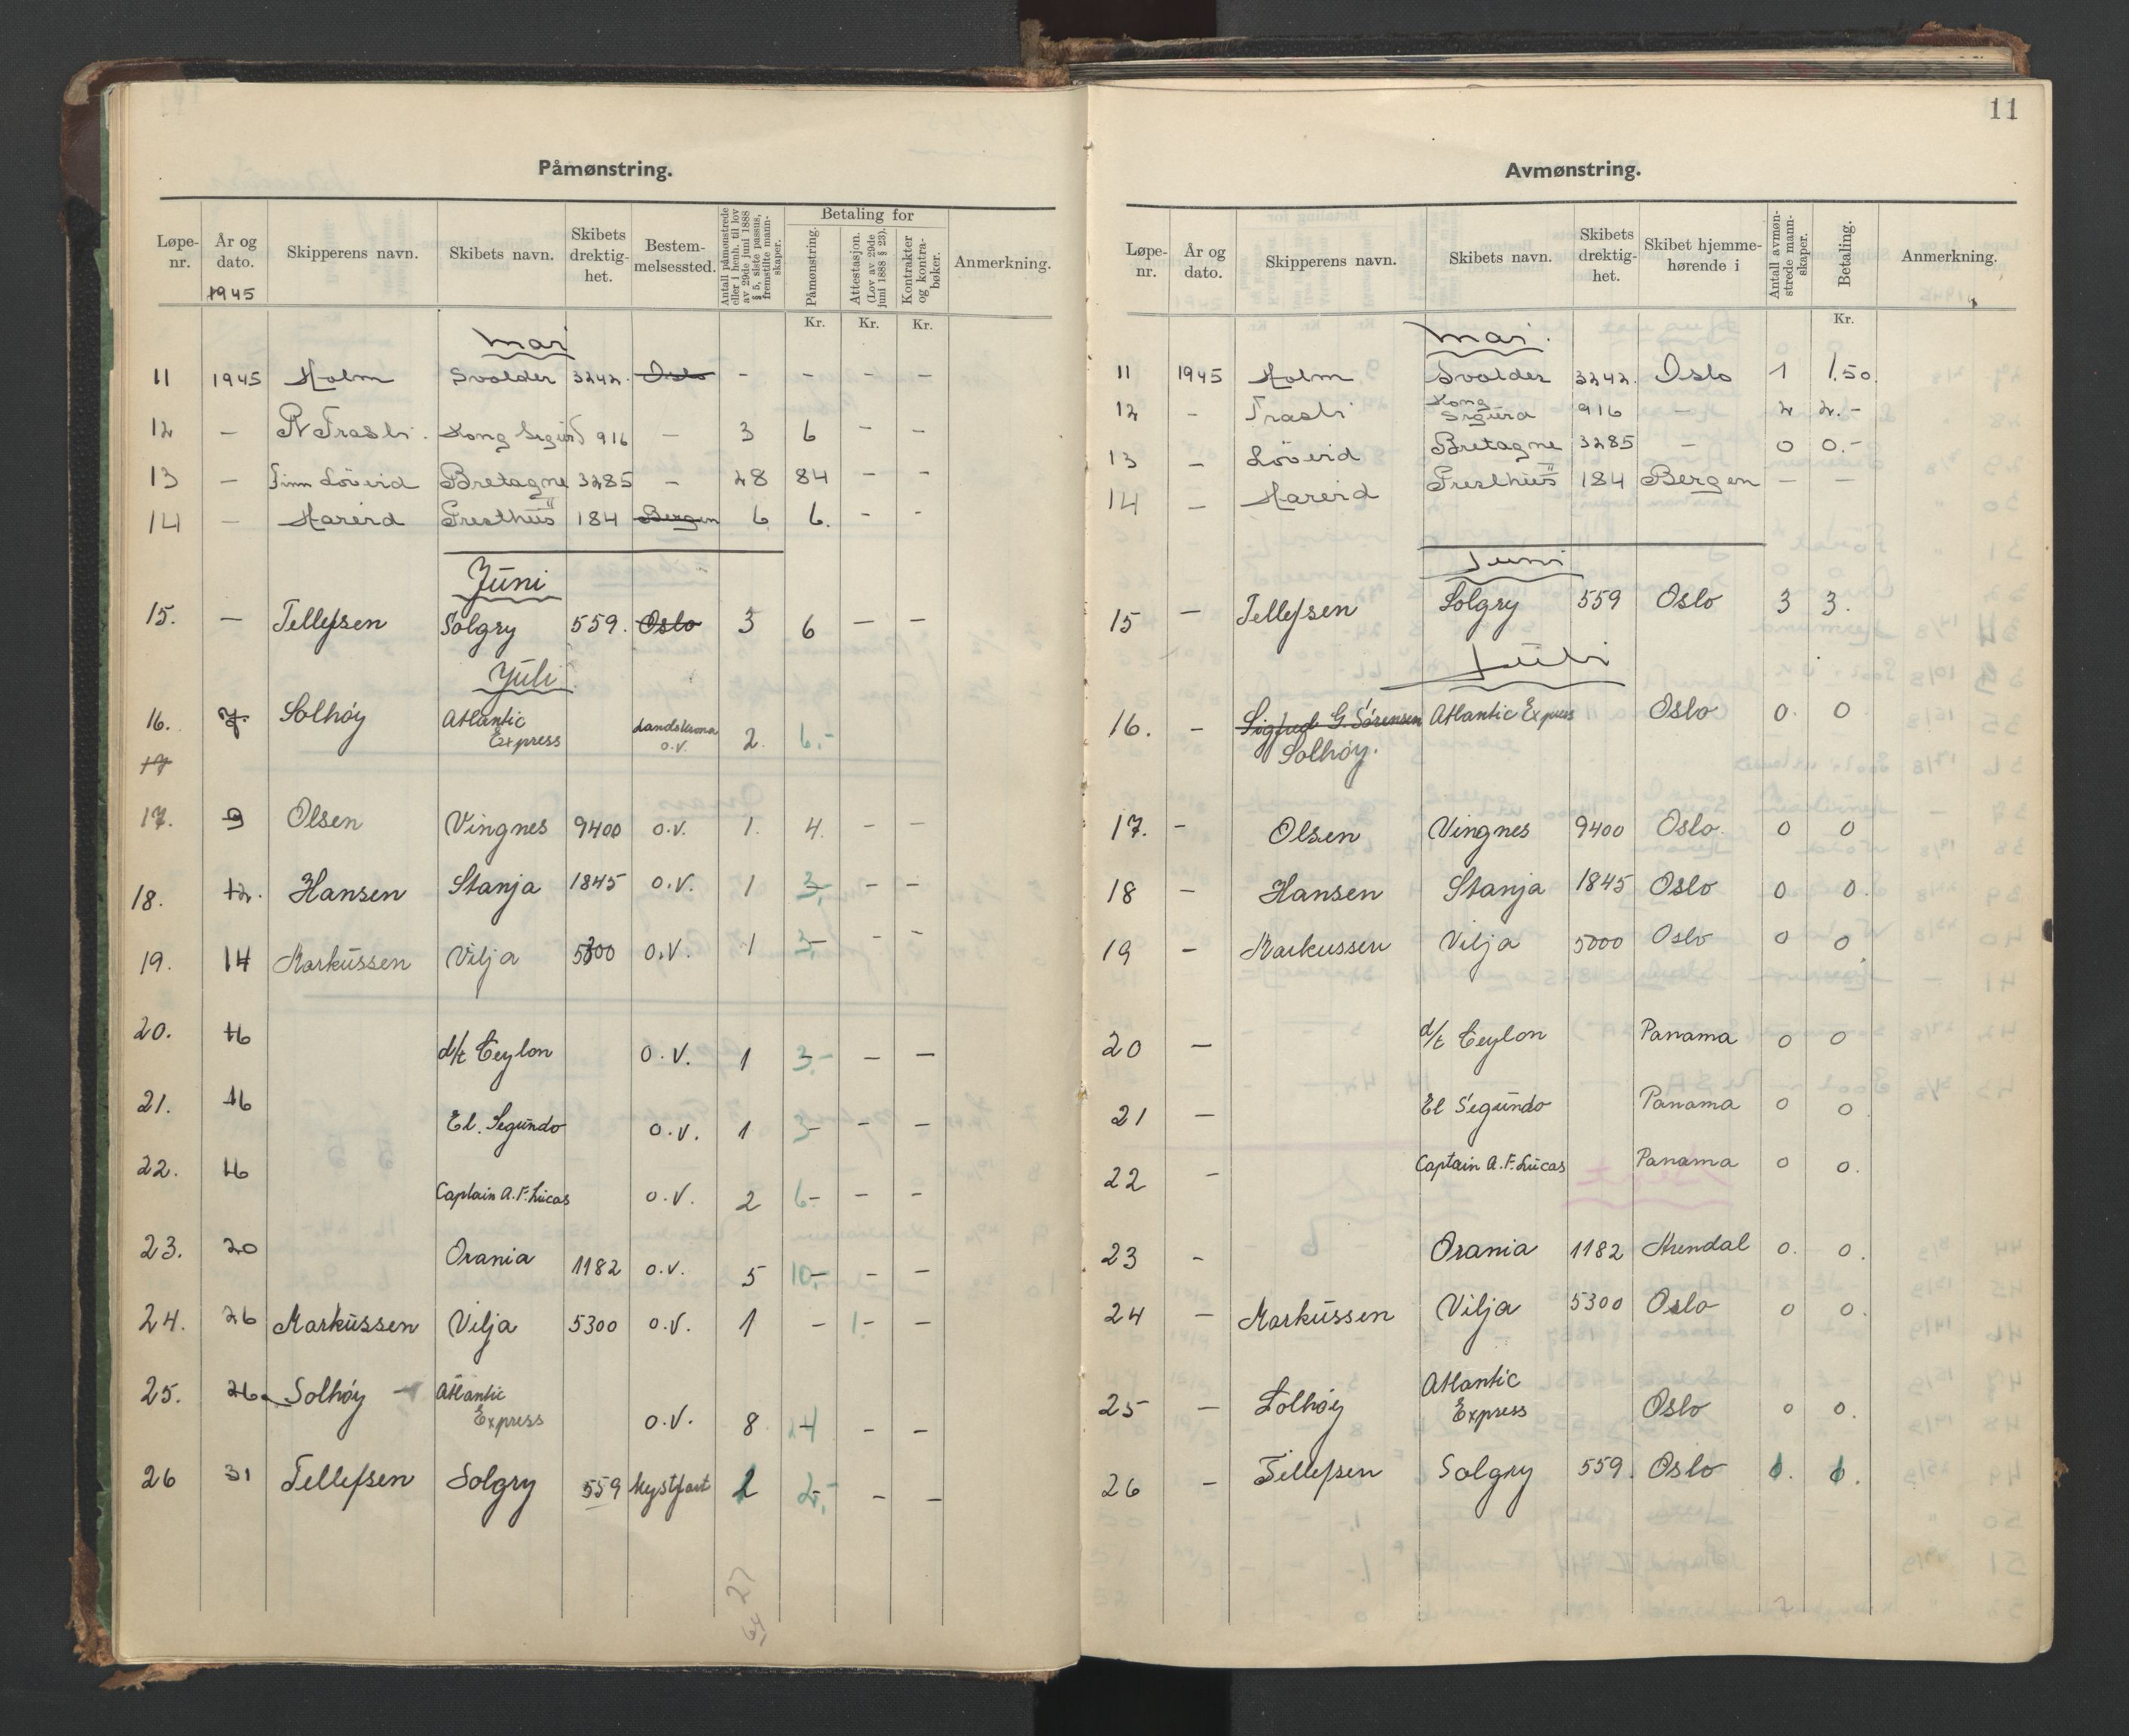 11
Påmønstring.
Løpenr. År og dato. Skipperens navn. Skibets navn. Skibets drektighet. Bestemmelsessted. Antall påmønstrede eller i henh. til lov av 29de juni 1888 § 5, siste passus, fremstilte mannskaper. Betaling for Påmønstring. Attestasjon. (Lov av 29de juni 1888 § 23). Kontrakter og kontrabøker. Anmerkning.
1945
Kr. Kr. Kr.
Mai
11 1945 Holm Svolder 3242. Oslo - - - -
12 - Frasli. Kong Sigurd 916 - 3 6 - -
13 - Finn Löveid Bretagne 3285 - 28 84 - -
14 - Hareid Presthus 184 Bergen 6 6. - -
Juni
15. - Tellefsen Solgry 559. Oslo 3 6 - -
Juli
16. 7. Solhöy Atlantic Express Landskrona o.v. 2. 6.-
17
17. 9 Olsen Vingnes 9400 o.v. 1. 4. - -
18. 12. Hansen Stanja 1845 o.v. 1 3.- - -
19. 14 Markussen Vilja 5300 o.v. 1 3.- - -
20. 16 d/t Ceylon o.v. 1 3.- - -
21. 16 El. Segundo o.v. 1 3.- - -
22. 16 Captain A.F. Lucas o.v. 2 6.- - -
23. 20 Orania 1182 o.v. 5 10.- - -
24. 26 Markussen Vilja 5300 o.v. 1 - 1.- -
25. 26. Solhöy - Atlantic Express o.v. 8 24 - -
26 31 Tellefsen Solgry 559 Kystfart 2 2.- - -
27
64
Avmønstring.
Løpenr. År og dato. Skipperens navn. Skibets navn. Skibets drektighet. Skibet hjemmehørende i Antall avmønstrede mannskaper. Betaling. Anmerkning.
Kr.
Mai.
11 1945 Holm Svolder 3242. Oslo 1 1.50.
12 - Frasli Kong Sigurd 916 - 2 2.-
13 - Löveid Bretagne 3285 - 0 0.-
14 - Hareid Presthus 184 Bergen - -
Juni
15 - Tellefsen Solgry 559 Oslo 3 3.
Juli
16. - Sigfred G. Sörensen Atlantic Express Oslo 0. 0
Solhöy.
17. - Olsen Vingnes 9400 Oslo. 0 0
18 - Hansen Stanja 1845 Oslo 0 0.
19 - Markussen Vilja 5000 Oslo 0 0.
20 - d/t Ceylon Panama 0 0
21 - El Segundo Panama 0 0
22 - Captain A.F. Lucas Panama 0 0.
23 - Orania 1182 Arendal 0. 0.
24 - Markussen Vilja 5300 Oslo 0 0.
25 - Solhöy Atlantic Express Oslo 0 0.
26 - Tellefsen Solgry 559. Oslo
7